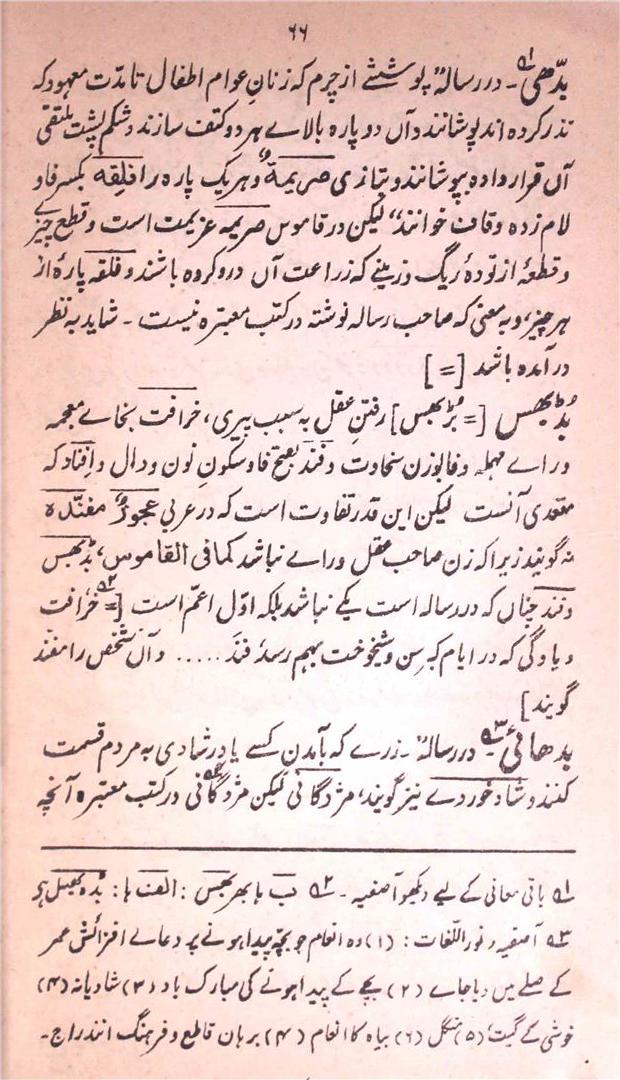 ۶۶
بدّھی ۱؎ ۔ در رسالہ" پوششے از چرم کہ زنانِ عوام اطفال تا مدّت معہود کہ
نذر کردہ اند پوشانند و آں دو پارہ بالاے ہر دو کتف سازند و شکم پشت ملتقی
آں قرار دادہ بپوشانند و بتازی صریمۃٌ و ہریک پارہ را فلِقہ بکسر فا و
لام زدہ و قاف خوانند" لیکن در قاموس صریمہ عزیمت است و قطع چیزے
و قطعۂ از تودۂ ریگ و زمینے کہ زراعت آں درو کردہ باشند و فلقہ پارۂ از
ہر چیز، و بہ معنی کہ صاحب رسالہ نوشتہ در کتب معتبرہ نیست ۔ شاید بہ نظر
در آمدہ باشد [=]
بُڈبھس [= بُڑبھس] رفتنِ عقل بہ سبب پیری، خرافت بخاے معجمہ
و راے مہملہ و فا بوزن سخاوت و فند بفتح فا و سکونِ نون و دال و افناد کہ
متعدی آنست لیکن این قدر تفاوت است کہ در عربی عجوزٌ مفنّدہ
نہ گویند زیرا کہ زن صاحب عقل و راے نباشد کما فی القاموس، بڈبھس
و فند چناں کہ در رسالہ است یکے نباشد بلکہ اوّل اعمّ است [= ۲؎ خرافت
و یاوگی کہ در ایام کبر سِن و شیخوخت بہم رسد، فند ..... و آں شخص را مفند
گویند]
بدھائی ۳؎ ۔ در رسالہ" زرے کہ بآمدن کسے یا در شادی بہ مردم قسمت
کنند و شاد خوردے نیز گویند، مژدگانی لیکن مژدگانی ۴؎ در کتب معتبرہ آنچہ
۱؎ باقی معانی کے لیے دیکھو آصفیہ ۔ ۲؎ ب با بھربھس : الف ہا : بڈہ بھیل ہی
۳؎ آصفیہ و نور اللّغات : (۱) وہ انعام جو بچّہ پیدا ہونے پر دعاے افزائش عمر
کے صلے میں دیا جاے (۲) بچے کے پیدا ہونے کی مبارک باد (۳) شادیانہ (۴)
خوشی کے گیت (۵) منگل (۶) بیاہ کا انعام (۴) برہان قاطع و فرہنگ انندراج ۔